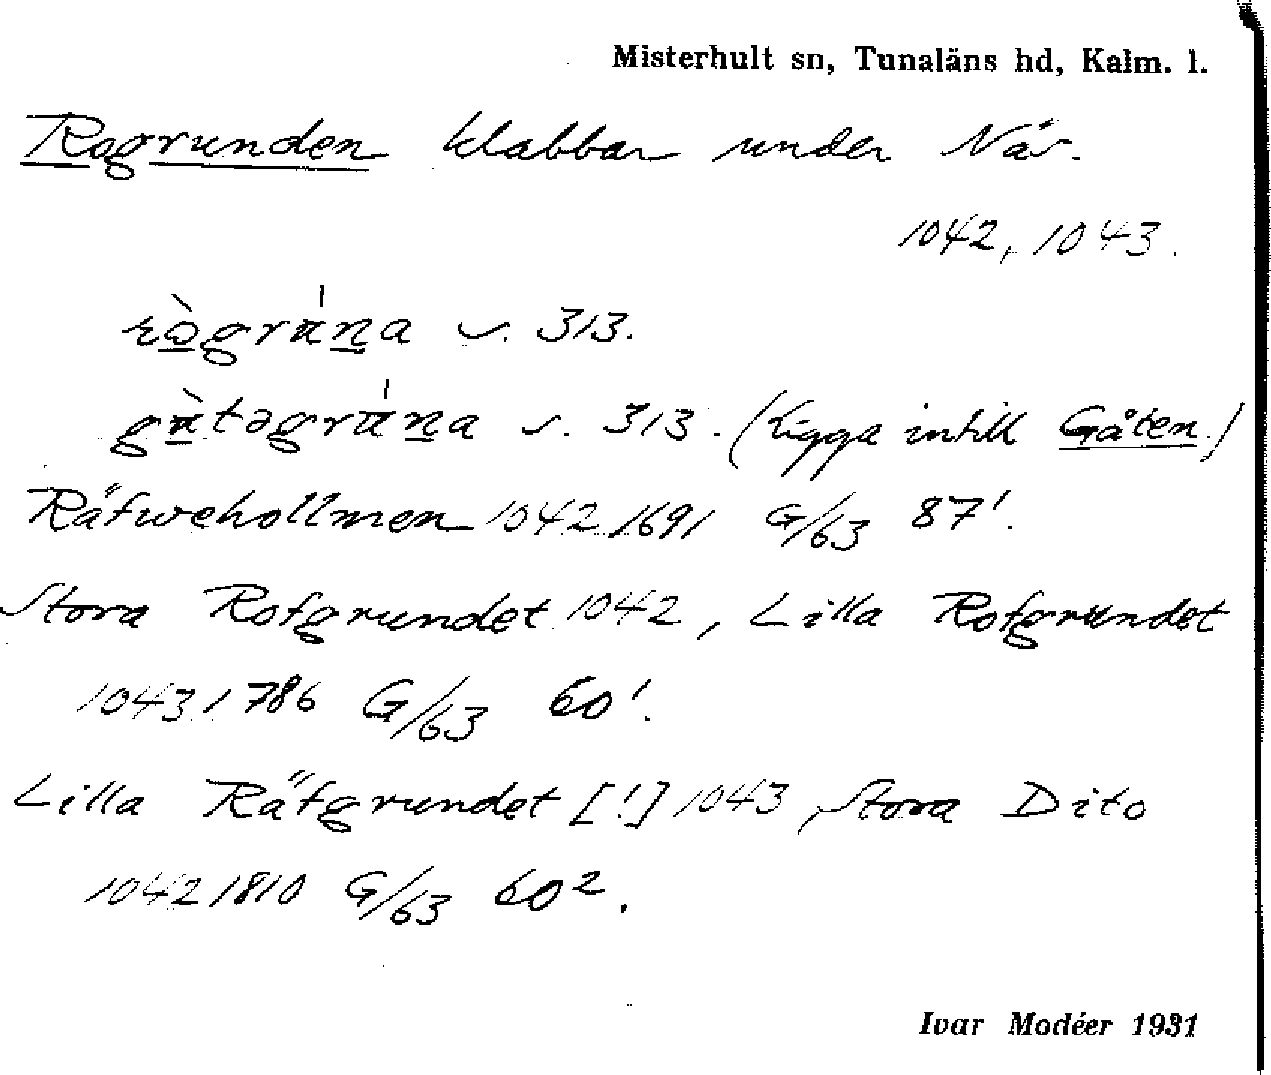 Misterhult sn, Tunaläns hd, Kalm. l.
Rogrunden klabbar under Näs.
1042, 1043.
s. 313.
s. 313. (Ligga intill Gåten.)
Räfwehollmen 1042 1691 G/63 87¹.
Stora Rofgrundet 1042, Lilla Rofgrundet
1043 1786 G/63 60¹.
Lilla Räfgrundet [!] 1043, Stora Dito
1042 1810 G/63 60².
Ivar Modéer 1931